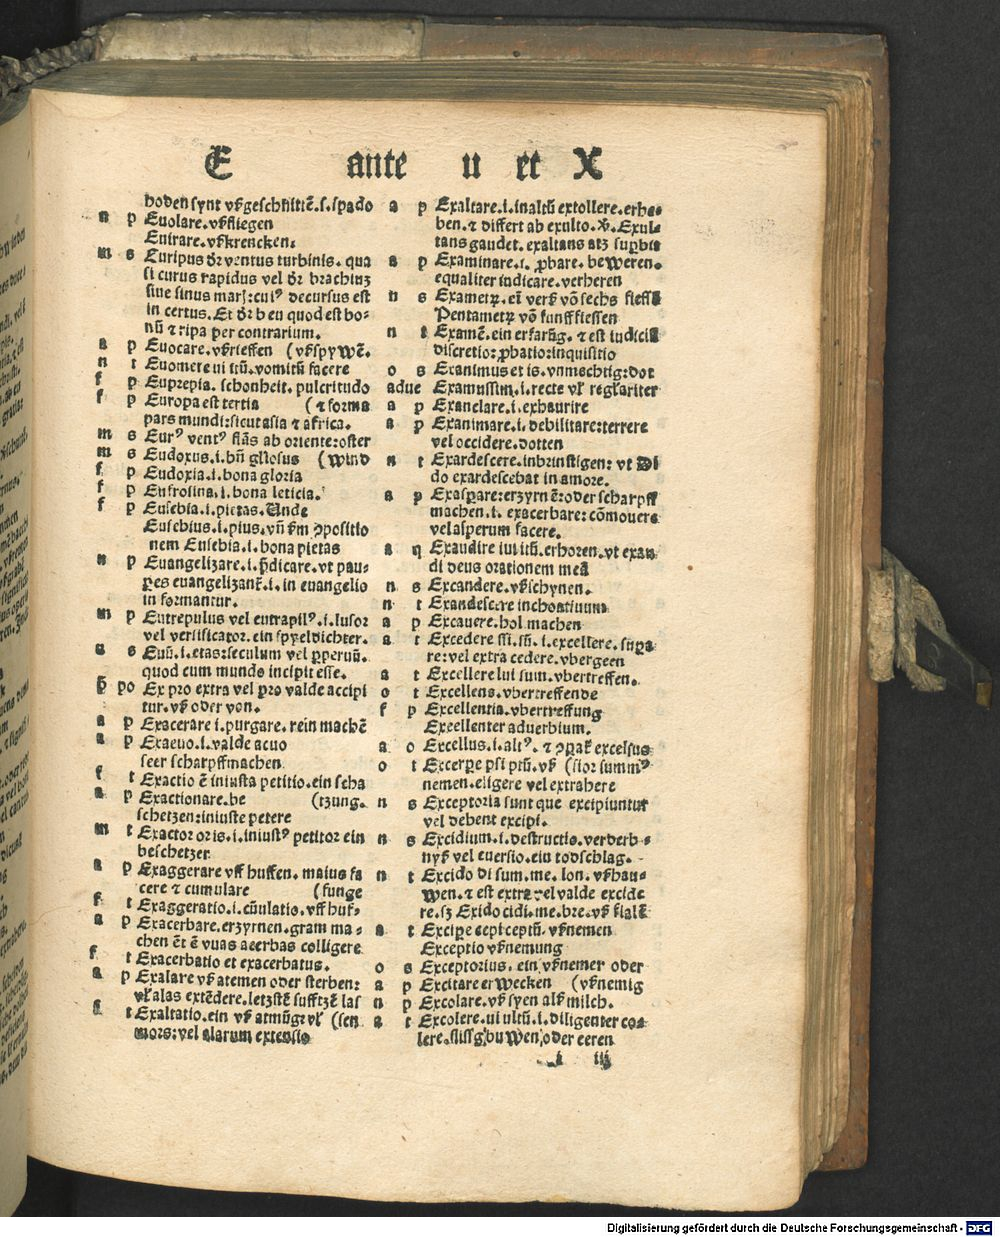 E ante u et X
hoden synt vßgeschnittē.s.spado
n p Euolare.vßfliegen
Euirare.vßkrencken.
m s Euripus dr ventus turbinis. qua
si curus rapidus vel dr brachiuz
siue sinus mar[:cui⁹ decursus est
in certus.Et dr b eu quod est bo⸗
nū ⁊ ripa per contrarium.
a p Euocare.vßrieffen (vßspywē.
n t Euomere ui itū.vomitū facere
f p Euprepia. schonheit. pulcritudo
f p Europa est tertia (⁊ forma
pars mundi:sicut asia ⁊ africa.
m s Eur⁹ vent⁹ flās ab oriente:oster
m s Eudoxus.i.bn̄ gl̄iosus (wind
f p Eudoxia.i.bona gloria
f p Eufrosina.i.bona leticia.
f p Eusebia.i.pietas.Unde
Eusebius.i.pius.vn̄ ẜm ꝯpositio
nem Eusebia.i.bona pietas
n p Euangelizare.i.p̄dicare.vt pau⸗
ꝑes euangelizant̄.i.in euangelio
in formantur.
m p Eutrepulus vel eutrapil⁹.i.lusor
vel versificator.ein spyeldichter.
a s Euū.i.etas:seculum vel ꝑpetuū.
quod cum mundo incipit esse.
p̄ po Ex pro extra vel pro valde accipi
tur.vß oder von.
a p Exacerare i.purgare.rein machē
a p Exacuo.i.valde acuo
seer scharpffmachen
f t Exactio ē iniusta petitio.ein scha
a p Exactionare.be (tzung.
schetzen:iniuste petere
m t Exactor oris.i.iniust⁹ petitor ein
beschetzer
a p Exaggerare vff huffen. maius fa
cere ⁊ cumulare (funge
f t Exaggeratio.i.cūulatio.vff huf⸗
a p Exacerbare.erzyrnen.gram ma⸗
chen ēt ē vuas acerbas colligere
f t Exacerbatio et exacerbatus.
a p Exalare vß atemen oder sterben:
vl̓ alas extēdere.letzstē sufftzē las
f t Exaltatio.ein vß atmūg:vl̓ (sen
mors:vel alarum extensio
a p Exaltare.i.inaltū extollere.erhe⸗
ben.⁊ differt ab exulto.V̄.Exul⸗
tans gaudet.exaltans atz suꝑbit
a p Examinare.i. ꝓbare. beweren.
equaliter iudicare.verheren
n s Exametꝝ.ei vers̓ vō sechs fiessē
Pentametꝝ vō funff fiessen
n t Examē.ein erfarūg. ⁊ est iudicii
discretio:ꝓbatio:inquisitio
o s Exanimus et is.vnmechtig:dot
adue Examussim.i.recte vl̓ regl̓ariter
a p Exanclare.i.exhaurire
a p Exanimare.i. debilitare:terrere
vel occidere.dotten
n t Exardescere.inbrinstigen: vt Di
do exardescebat in amore.
a p Exasꝑare:erzyrnē:oder scharpff
machen.i. exacerbare: cōmouere
vel asperum facere.
a q Exaudire iui itū.erhoren.vt exau
di deus orationem meā
n s Excandere.vßschynen.
n t Exandescere inchoatiuum
a p Excauere.hol machen
a t Excedere ssi.sū.i.excellere. suꝑa⸗
re:vel extra cedere.vbergeen
a t Excellere lui sum.vbertreffen.
o t Excellens.vbertreffende
f p Excellentia.vbertreffung
Excellenter aduerbium.
a o Excellus.i.alt⁹. ⁊ ꝯꝑat̄ excelsus
o t Excerpe psi ptū.vß (sior summ⁹
nemen.eligere vel extrahere
n s Exceptoria sunt que excipiuntur
vel debent excipi.
n s Excidium.i.destructio.verderb⸗
nyß vel euersio.ein todschlag.
n t Excido di sum.me.lon. vßhau⸗
wen.⁊ est extra vel valde excide
re.sz Exido cidi.me.bre.vß
a t Excipe cepi ceptū. vßnemen
Exceptio vßnemung
o s Exceptorius.ein vßnemer oder
a p Excitare erwecken (vßnemig
n p Excolare.vß syen als̓ milch.
a t Excolere.ui ultū.i.diligenter co⸗
lere.flissig buwen oder eeren
i iij
Digitalisierung gefördert durch die Deutsche Forschungsgemeinschaft - DFG